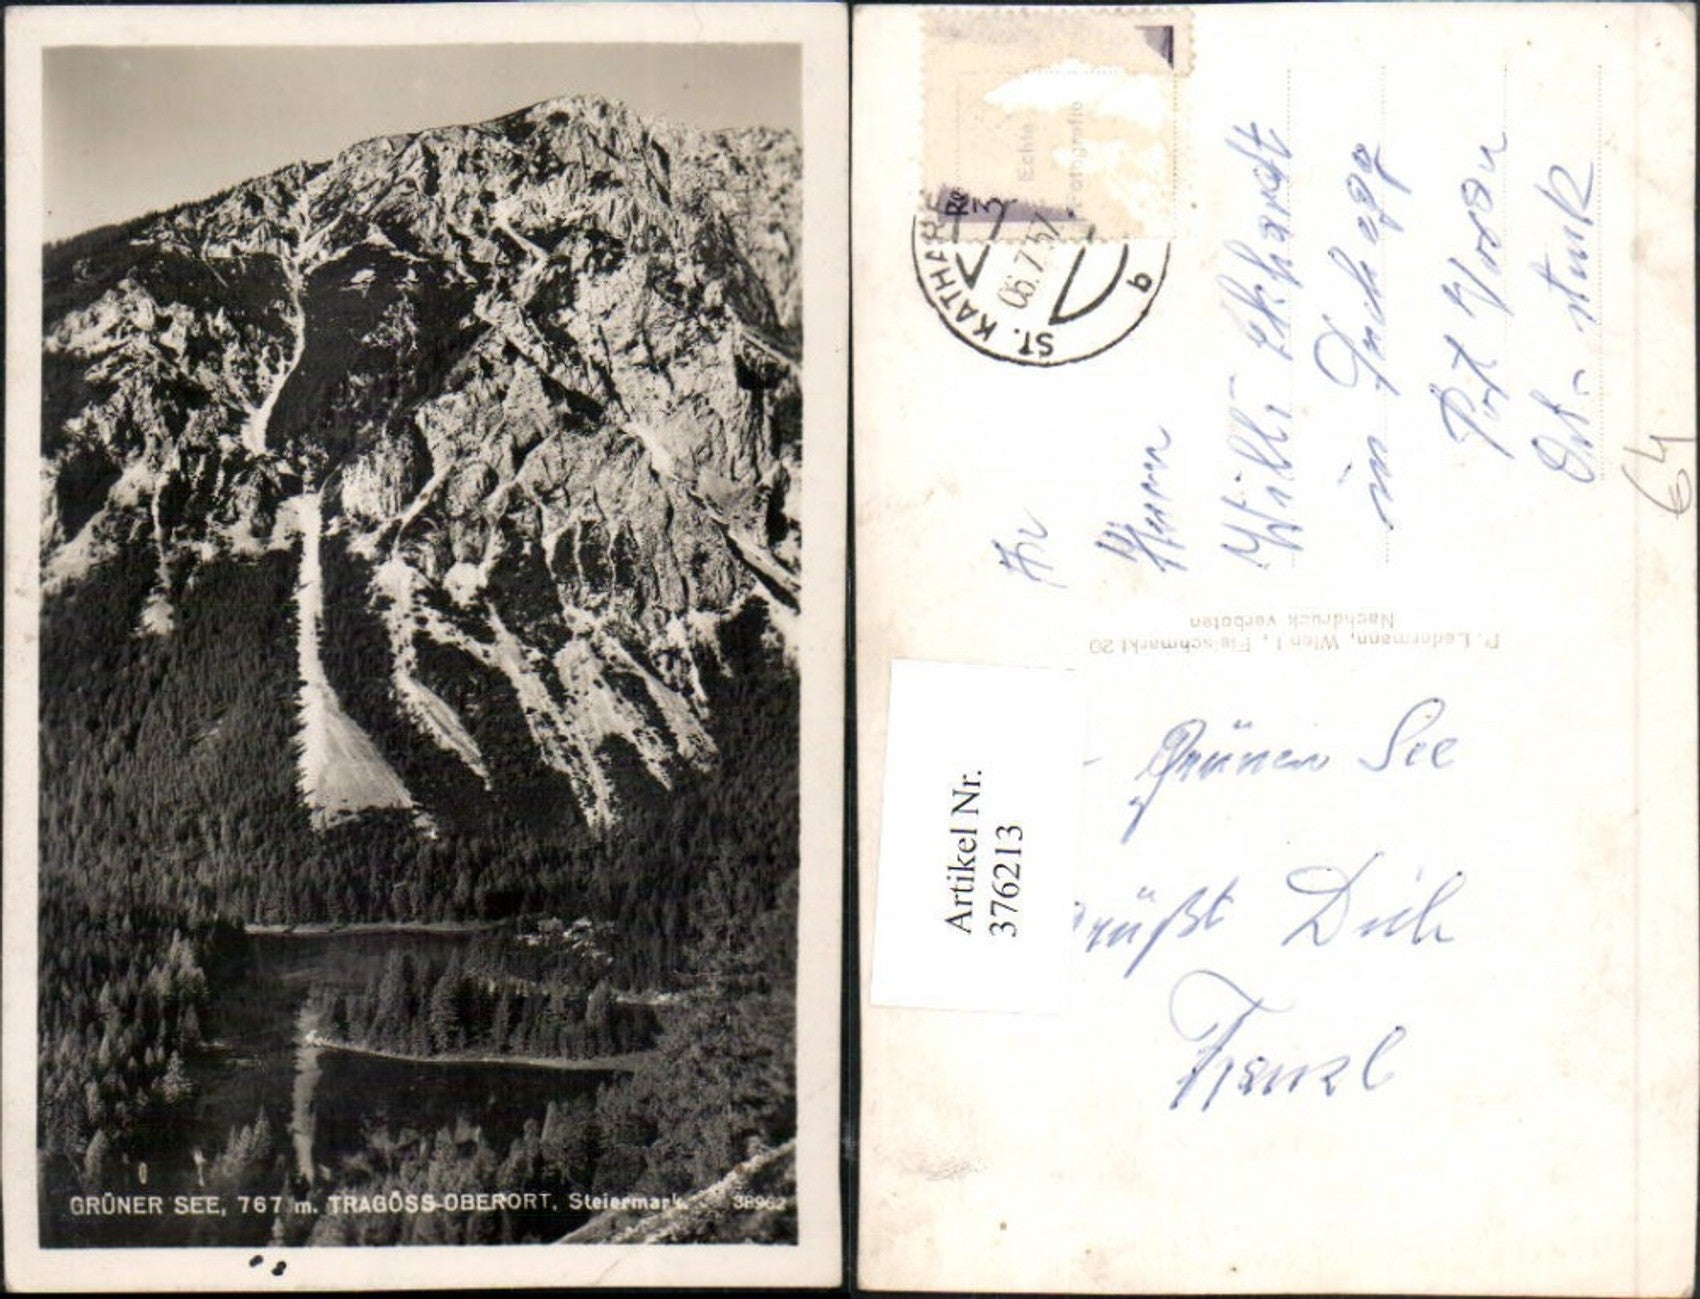 GRÜNER SEE, 767 m. TRAGÖSS-OBERORT, Steiermark. 38962
Echte
Fotografie
ST. KATH
06.7.57
b
Herrn
Willi Ekhardt
in
Post Vorau
Ost-
64
P. Ledermann, Wien I., Fleischmarkt 20
Nachdruck verboten
Artikel Nr.
376213
Grünen See
grüßt Dich
Franzl